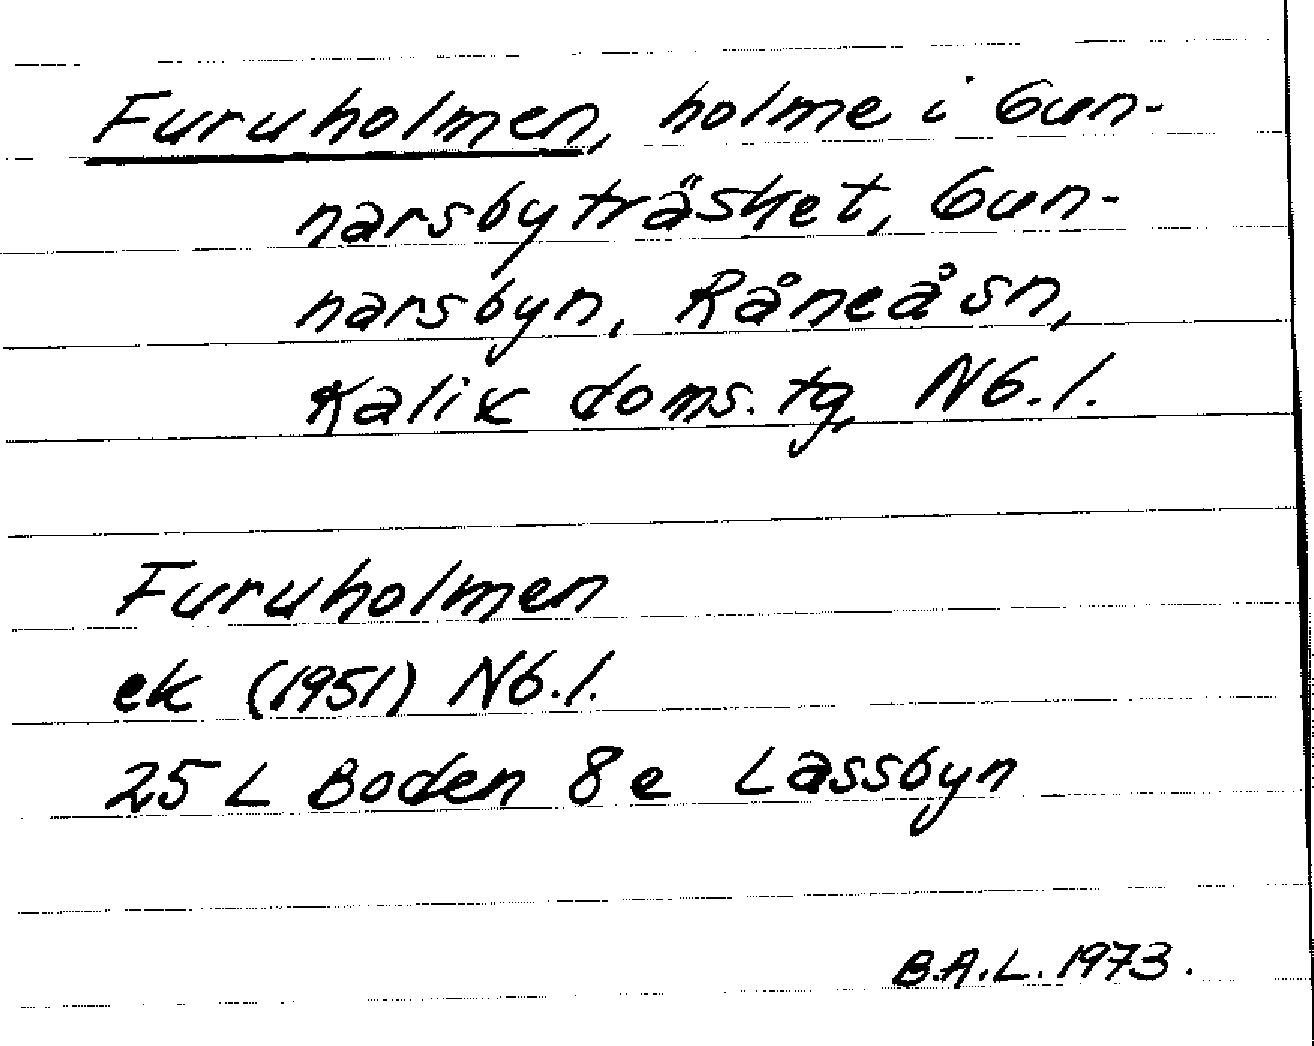 Furuholmen, holme i Gun-
narsbyträsket, Gun-
narsbyn, Råneå sn,
Kalix doms. tg, Nb. l.
Furuholmen
ek (1951) Nb. l.
25 L Boden 8e Lassbyn
B.A.L. 1973.